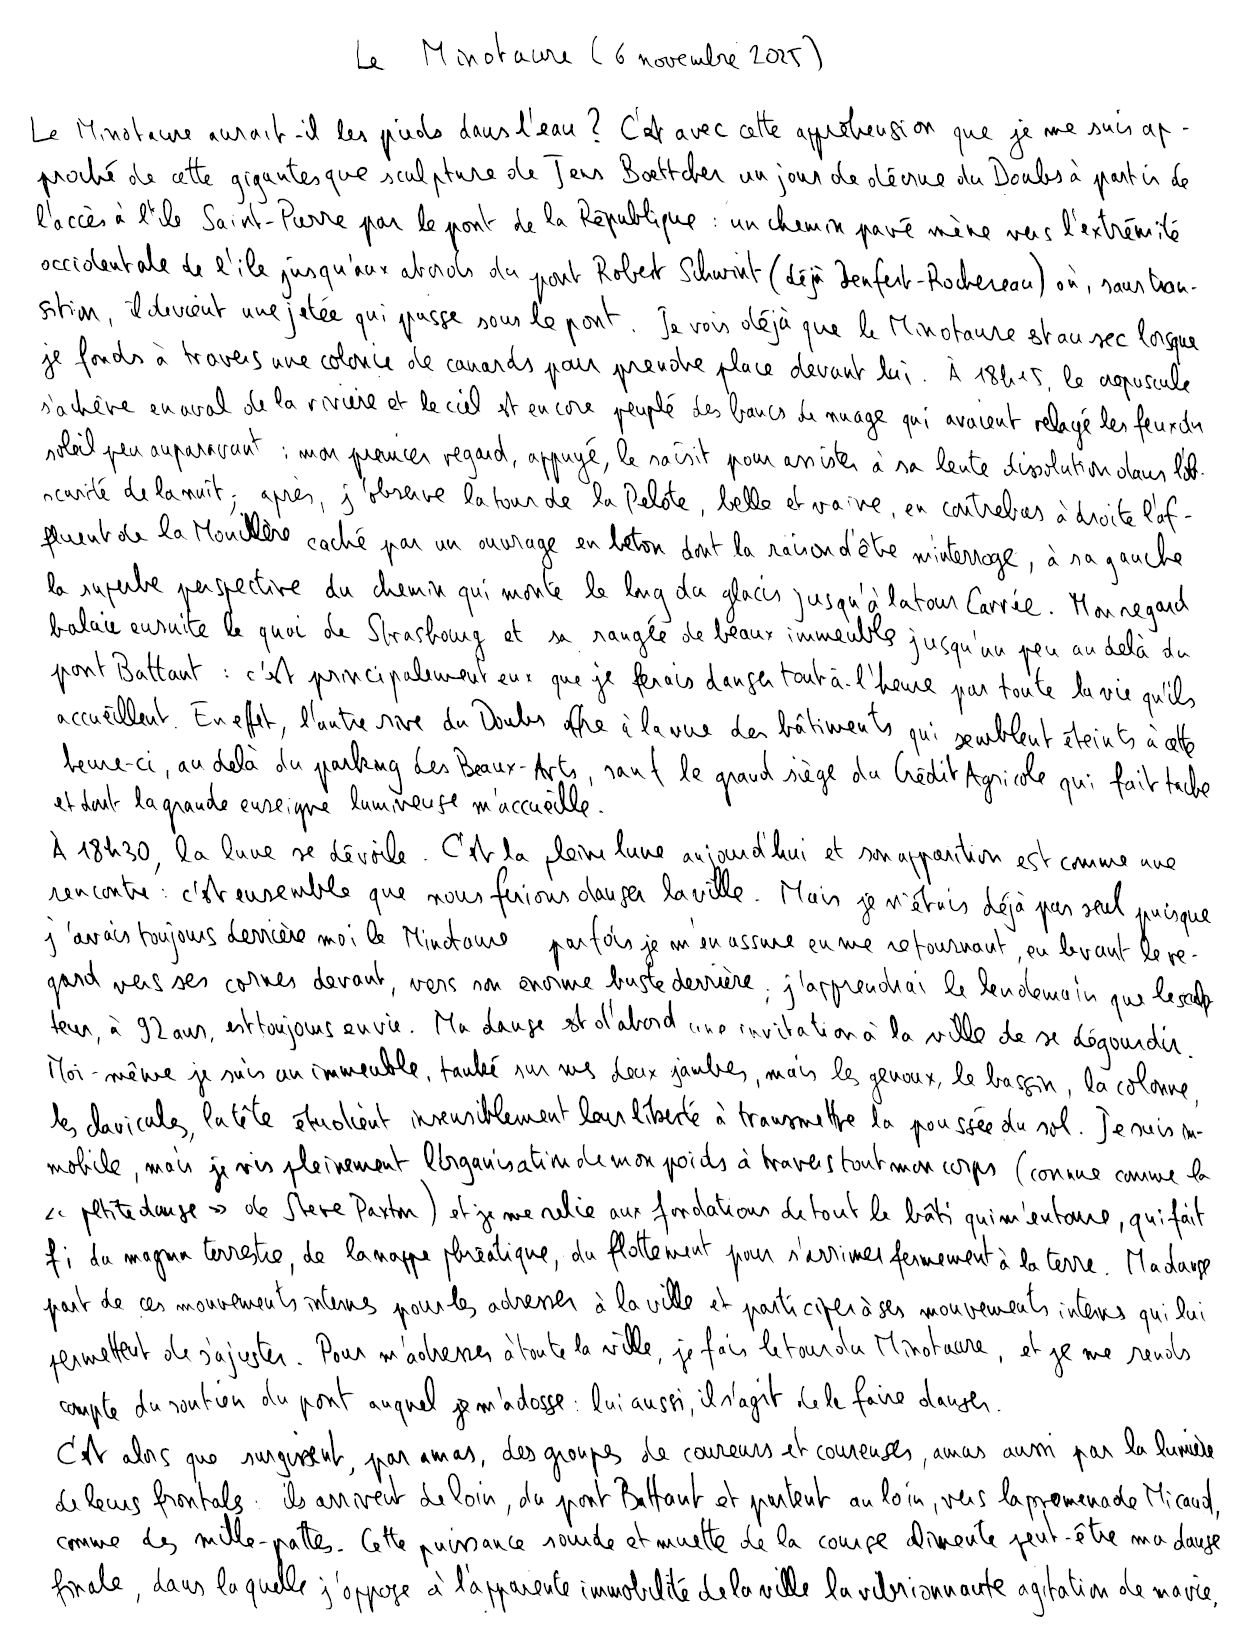 Le Minotaure (6 novembre 2025)
Le Minotaure aurait-il les pieds dans l'eau ? C'est avec cette appréhension que je me suis ap-
proché de cette gigantesque sculpture de Jens Boettcher un jour de décrue du Doubs à partir de
l'accès à l'île Saint-Pierre par le pont de la République : un chemin pavé mène vers l'extrémité
occidentale de l'île jusqu'aux abords du pont Robert Schwint (déjà Denfert-Rochereau) où, sans tran-
sition, il devient une jetée qui passe sous le pont. Je vois déjà que le Minotaure est au sec lorsque
je fonds à travers une colonie de canards pour prendre place devant lui. À 18h15, le crépuscule
s'achève en aval de la rivière et le ciel est encore peuplé des bancs de nuage qui avaient relayé les feux du
soleil peu auparavant : mon premier regard, appuyé, le saisit pour assister à sa lente dissolution dans l'ob-
scurité de la nuit ; après, j'observe la tour de la Pelote, belle et vaine, en contrebas à droite l'af-
fluent de la Mouillère caché par un ouvrage en béton dont la raison d'être m'interroge, à sa gauche
la superbe perspective du chemin qui monte le long du glacis jusqu'à la tour Carrée. Mon regard
balaie ensuite le quai de Strasbourg et sa rangée de beaux immeubles jusqu'un peu au delà du
pont Battant : c'est principalement eux que je ferais danser tout-à-l'heure par toute la vie qu'ils
accueillent. En effet, l'autre rive du Doubs offre à la vue des bâtiments qui semblent éteints à cette
heure-ci, au delà du parking des Beaux-Arts, sauf le grand siège du Crédit Agricole qui fait tache
et dont la grande enseigne lumineuse m'accueille.
À 18h30, la lune se dévoile. C'est la pleine lune aujourd'hui et son apparition est comme une
rencontre : c'est ensemble que nous ferions danser la ville. Mais je n'étais déjà pas seul puisque
j'avais toujours derrière moi le Minotaure parfois je m'en assure en me retournant, en levant le re-
gard vers ses cornes devant, vers son énorme buste derrière ; j'apprendrai le lendemain que le sculp
teur, à 92 ans, est toujours en vie. Ma danse est d'abord une invitation à la ville de se dégourdir.
Moi-même je suis un immeuble, tanké sur mes deux jambes, mais les genoux, le bassin, la colonne,
les clavicules, la tête étudient insensiblement leur liberté à transmettre la poussée du sol. Je suis im-
mobile, mais je vis pleinement l'organisation de mon poids à travers tout mon corps (connue comme la
« petite danse » de Steve Paxton) et je me relie aux fondations de tout le bâti qui m'entoure, qui fait
fi du magma terrestre, de la nappe phréatique, du flottement pour s'arrimer fermement à la terre. Ma danse
part de ces mouvements internes pour les adresser à la ville et participer à ses mouvements internes qui lui
permettent de s'ajuster. Pour m'adresser à toute la ville, je fais le tour du Minotaure, et je me rends
compte du soutien du pont auquel je m'adosse : lui aussi, il s'agit de le faire danser.
C'est alors que surgissent, par amas, des groupes de coureurs et coureuses, amas aussi par la lumière
de leurs frontales : ils arrivent de loin, du pont Battant et partent au loin, vers la promenade Micaud,
comme des mille-pattes. Cette puissance sourde et muette de la course alimente peut-être ma danse
finale, dans laquelle j'oppose à l'apparente immobilité de la ville la vibrionnante agitation de ma vie,